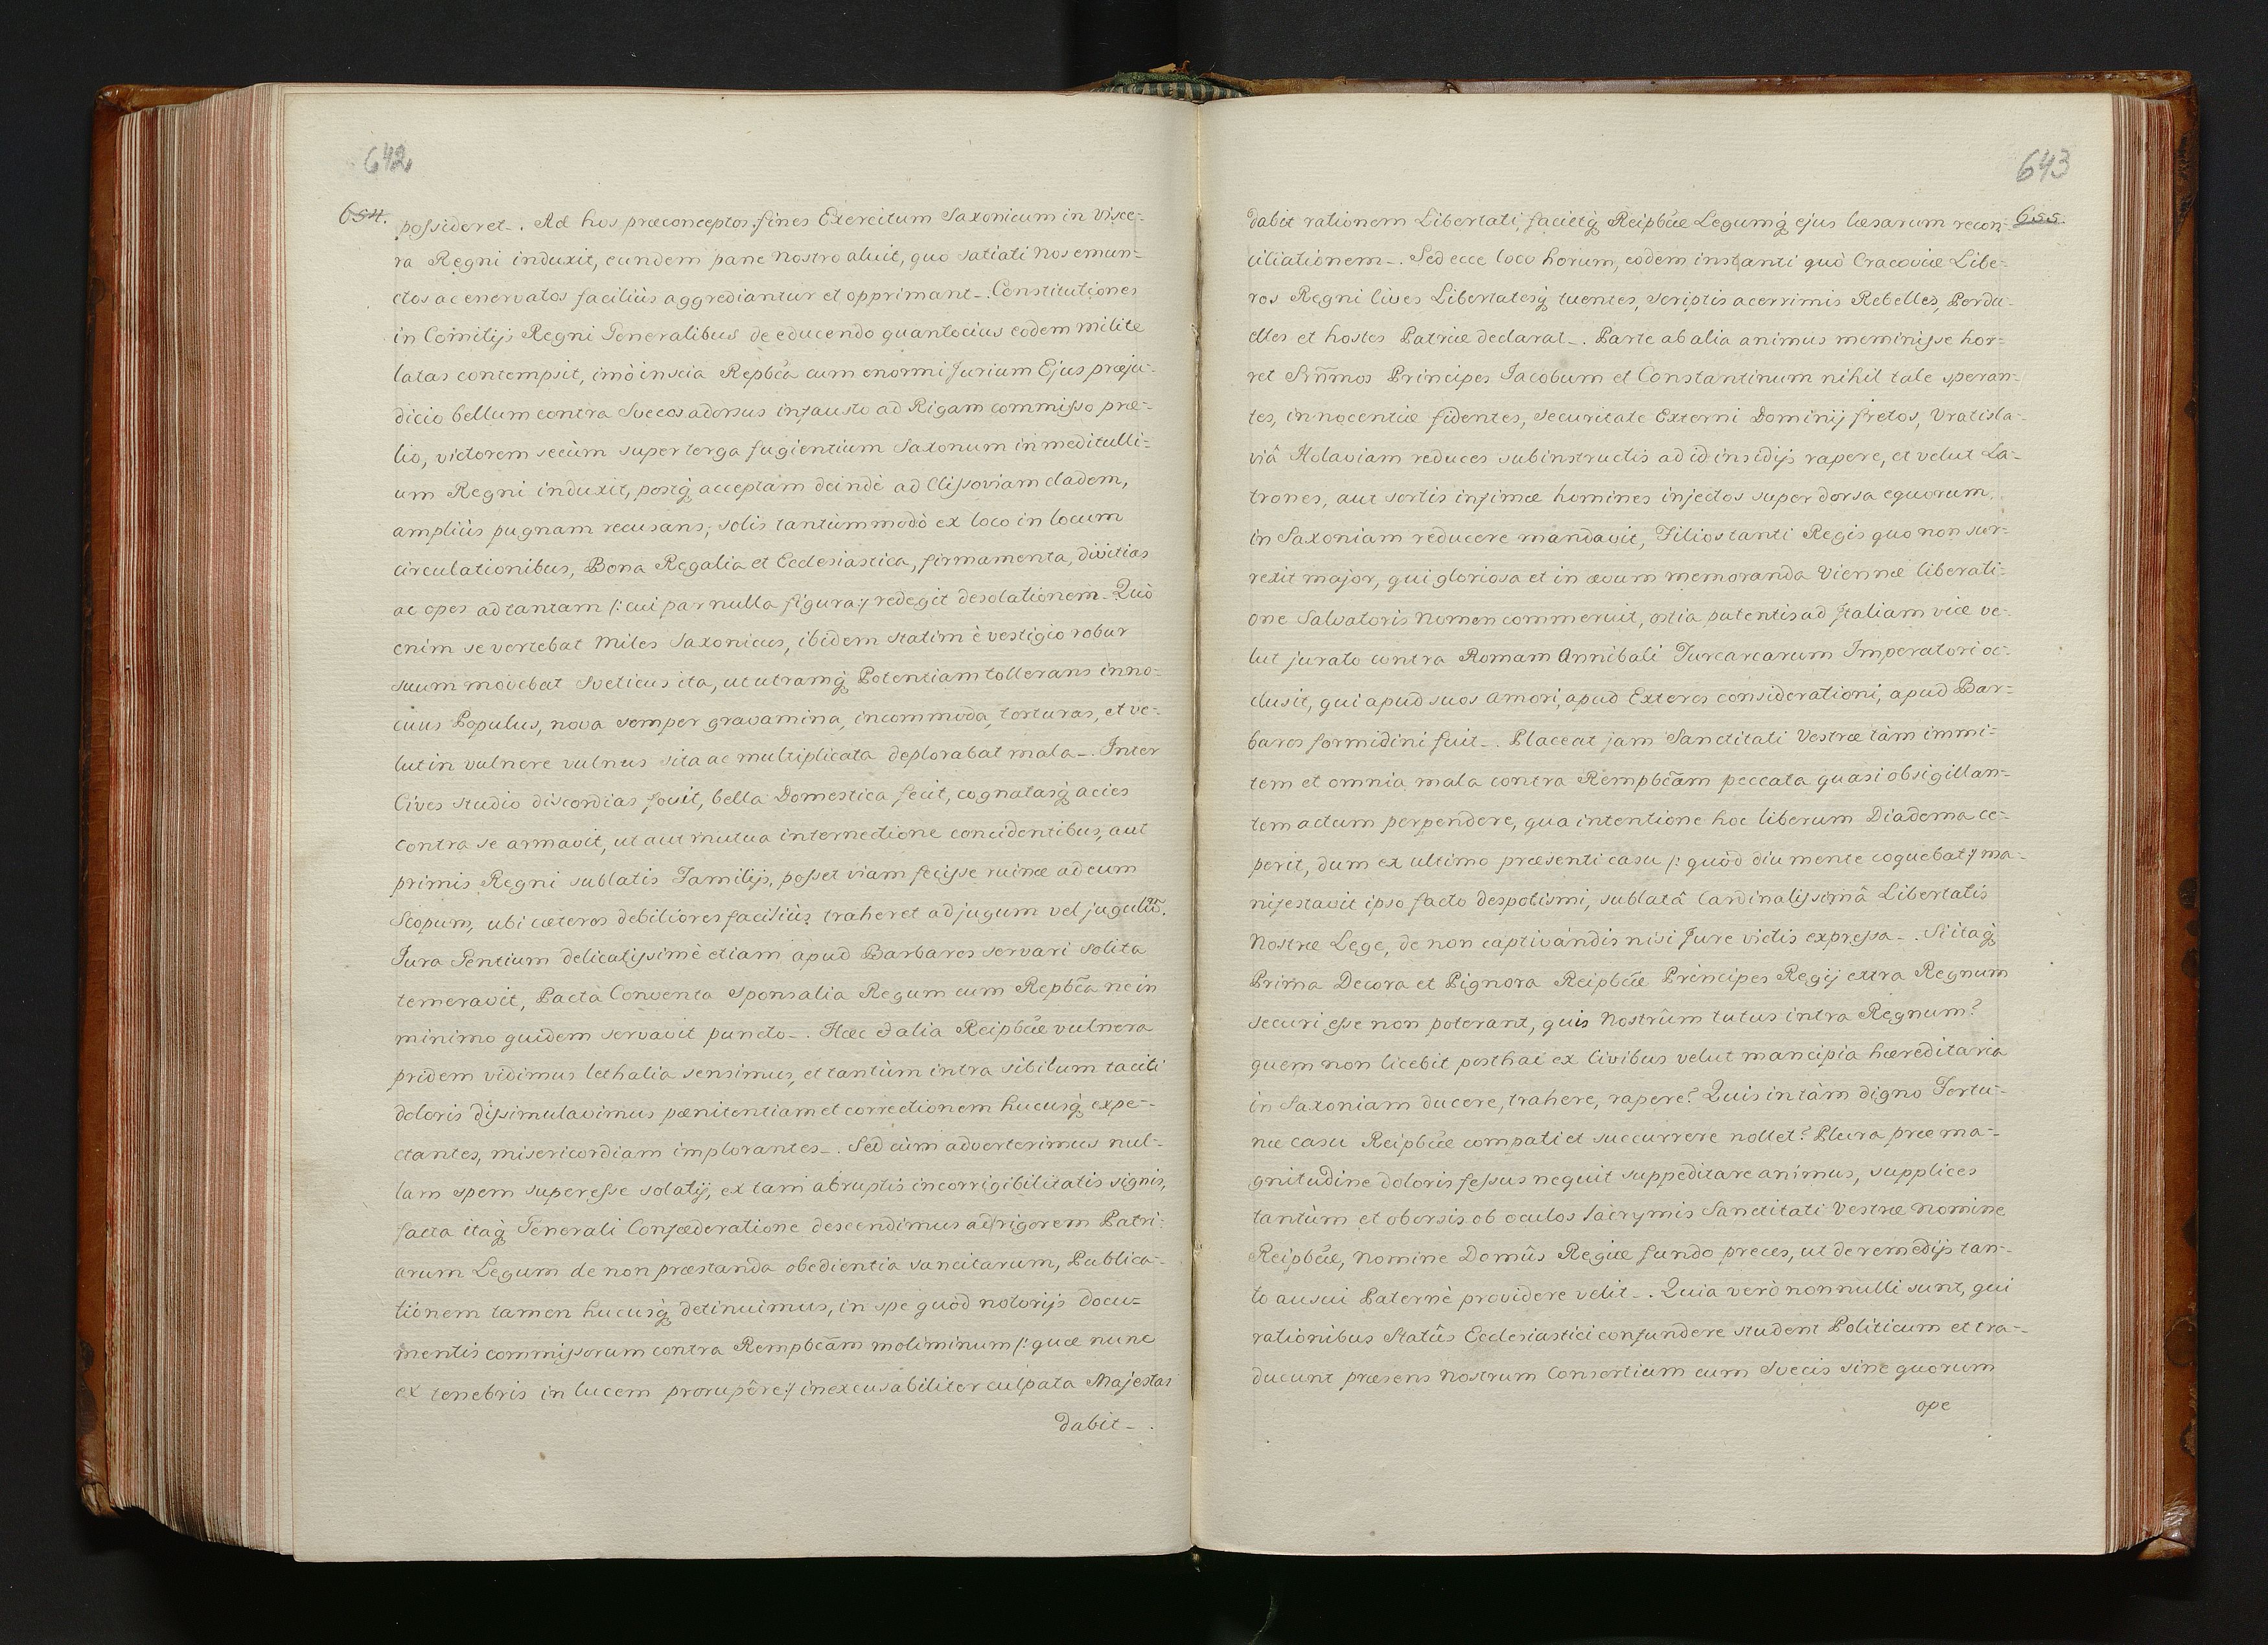 642
654.
possideret_. Ad hos præconceptos fines Exercitum Saxonicum in visce-
ra Regni induxit, eundem pane nostro aluit, quo satiati nos emun-
ctos ac enervatos faciliùs aggrediantur et opprimant_. Constitutiones
in Comitijs Regni Generalibus de educendo quantocius eodem milite
latas contempsit, imò inscia Repbca cum enormi Jurium Ejus præju-
dicio bellum contra Svecos adorsus infausto ad Rigam commisso præ-
lio, victorem secùm super terga fugientium Saxonum in meditulli-
um Regni induxit, postq acceptam deindè ad Clissoviam cladem,
ampliùs pugnam recusans, solis tantùmmodò ex loco in locum
circulationibus, Bona Regalia et Ecclesiastica, firmamenta, divitias
ac opes ad tantam /: cui par nulla figura :/ redegit desolationem_ Quò
enim se vertebat Miles Saxonicus, ibidem statim è vestigio robur
suum movebat Sveticus ita, ut utramq Potentiam tollerans inno-
cuus Populus, nova semper gravamina, incommoda, torturas, et ve-
lut in vulnere vulnus sita ac multiplicata deplorabat mala_. Inter
Cives studio discordias fovit, bella Domestica fecit, cognatasq acies
contra se armavit, ut aut mutua internectione concidentibus, aut
primis Regni sublatis Familijs, posset viam fecisse ruinæ ad eum
Scopum, ubi cæteros debiliores faciliùs traheret ad jugum vel jugulũ.
Jura Gentium delicatissimè etiam apud Barbaros servari solita
temeravit, Pacta Conventa Sponsalia Regum cum Repbca ne in
minimo quidem servavit puncto_. Hæc et alia Reipbcæ vulnera
pridem vidimus lethalia sensimus, et tantùm intra sibilum taciti
doloris dissimulavimus pænitentiam et correctionem hucusq expe-
ctantes, misericordiam implorantes_. Sed cùm adverterimus nul-
lam spem superesse solatij, ex tam abruptis incorrigibilitatis signis,
facta itaq Generali Confæderatione descendimus ad rigorem Patri-
arum Legum de non præstanda obedientia sancitarum, Publica-
tionem tamen hucusq detinuimus, in spe quòd notorijs docu=
mentis commissorum contra Rempbcam moliminum /: quæ nunc
ex tenebris in lucem prorupêre :/ inexcusabiliter culpata Majestas
dabit_.
643
655.
dabit rationem Libertati, facietq Reipbcæ Legumq ejus læsarum recon-
ciliationem_. Sed ecce loco horum, eodem instanti quò Cracoviæ Libe-
ros Regni Cives Libertatesq tuentes, scriptis acerrimis Rebelles, Perdu-
elles et hostes Patriæ declarat_. Parte ab alia animus meminisse hor-
ret Srñmos Principes Jacobum et Constantinum nihil tale speran-
tes, innocentiæ fidentes, securitate Externi Dominij fretos, Vratisla-
viâ Holaviam reduces subinstructis ad id insidijs rapere, et velut La-
trones, aut sortis infimæ homines injectos super dorsa equorum,
in Saxoniam reducere mandavit, Filios tanti Regis quo non sur-
rexit major, qui gloriosa et in ævum memoranda Viennæ liberati-
one Salvatoris Nomen commeruit, ostia patentis ad Italiam viæ ve-
lut jurato contra Romam Annibali Turcarcarum Imperatori oc-
clusit, qui apud suos amori, apud Exteros considerationi, apud Bar-
baros formidini fuit_. Placeat jam Sanctitati Vestræ tàm immi-
tem et omnia mala contra Rempbcãm peccata quasi obsigillan-
tem actum perpendere, qua intentione hoc liberum Diadema ce-
perit, dum ex ultimo præsenti casu /: quòd diu mente coquebat :/ ma-
nifestavit ipso facto despotismi, sublatâ Cardinalissimâ Libertatis
Nostræ Lege, de non captivandis nisi Jure victis expressa_. Si itaq
Prima Decora et Pignora Reipbcæ Principes Regij extra Regnum
securi esse non poterant, quis Nostrûm tutus intra Regnum?
quem non licebit posthac ex Civibus velut mancipia hæreditaria
in Saxoniam ducere, trahere, rapere? Quis in tàm digno Fortu-
næ casu Reipbcæ compati et succurrere nollet? Plura præ ma-
gnitudine doloris fessus nequit suppeditare animus, supplices
tantùm et obersis ob oculos lacrymis Sanctitati Vestræ nomine
Reipbcæ, Nomine Domûs Regiæ fundo preces, ut de remedijs tan-
to ausui Paternè providere velit_. Quia verò nonnulli sunt, qui
rationibus Statûs Ecclesiastici confundere student Politicum et tra-
ducunt præsens Nostrum Consortium cum Svecis sine quorum
ope